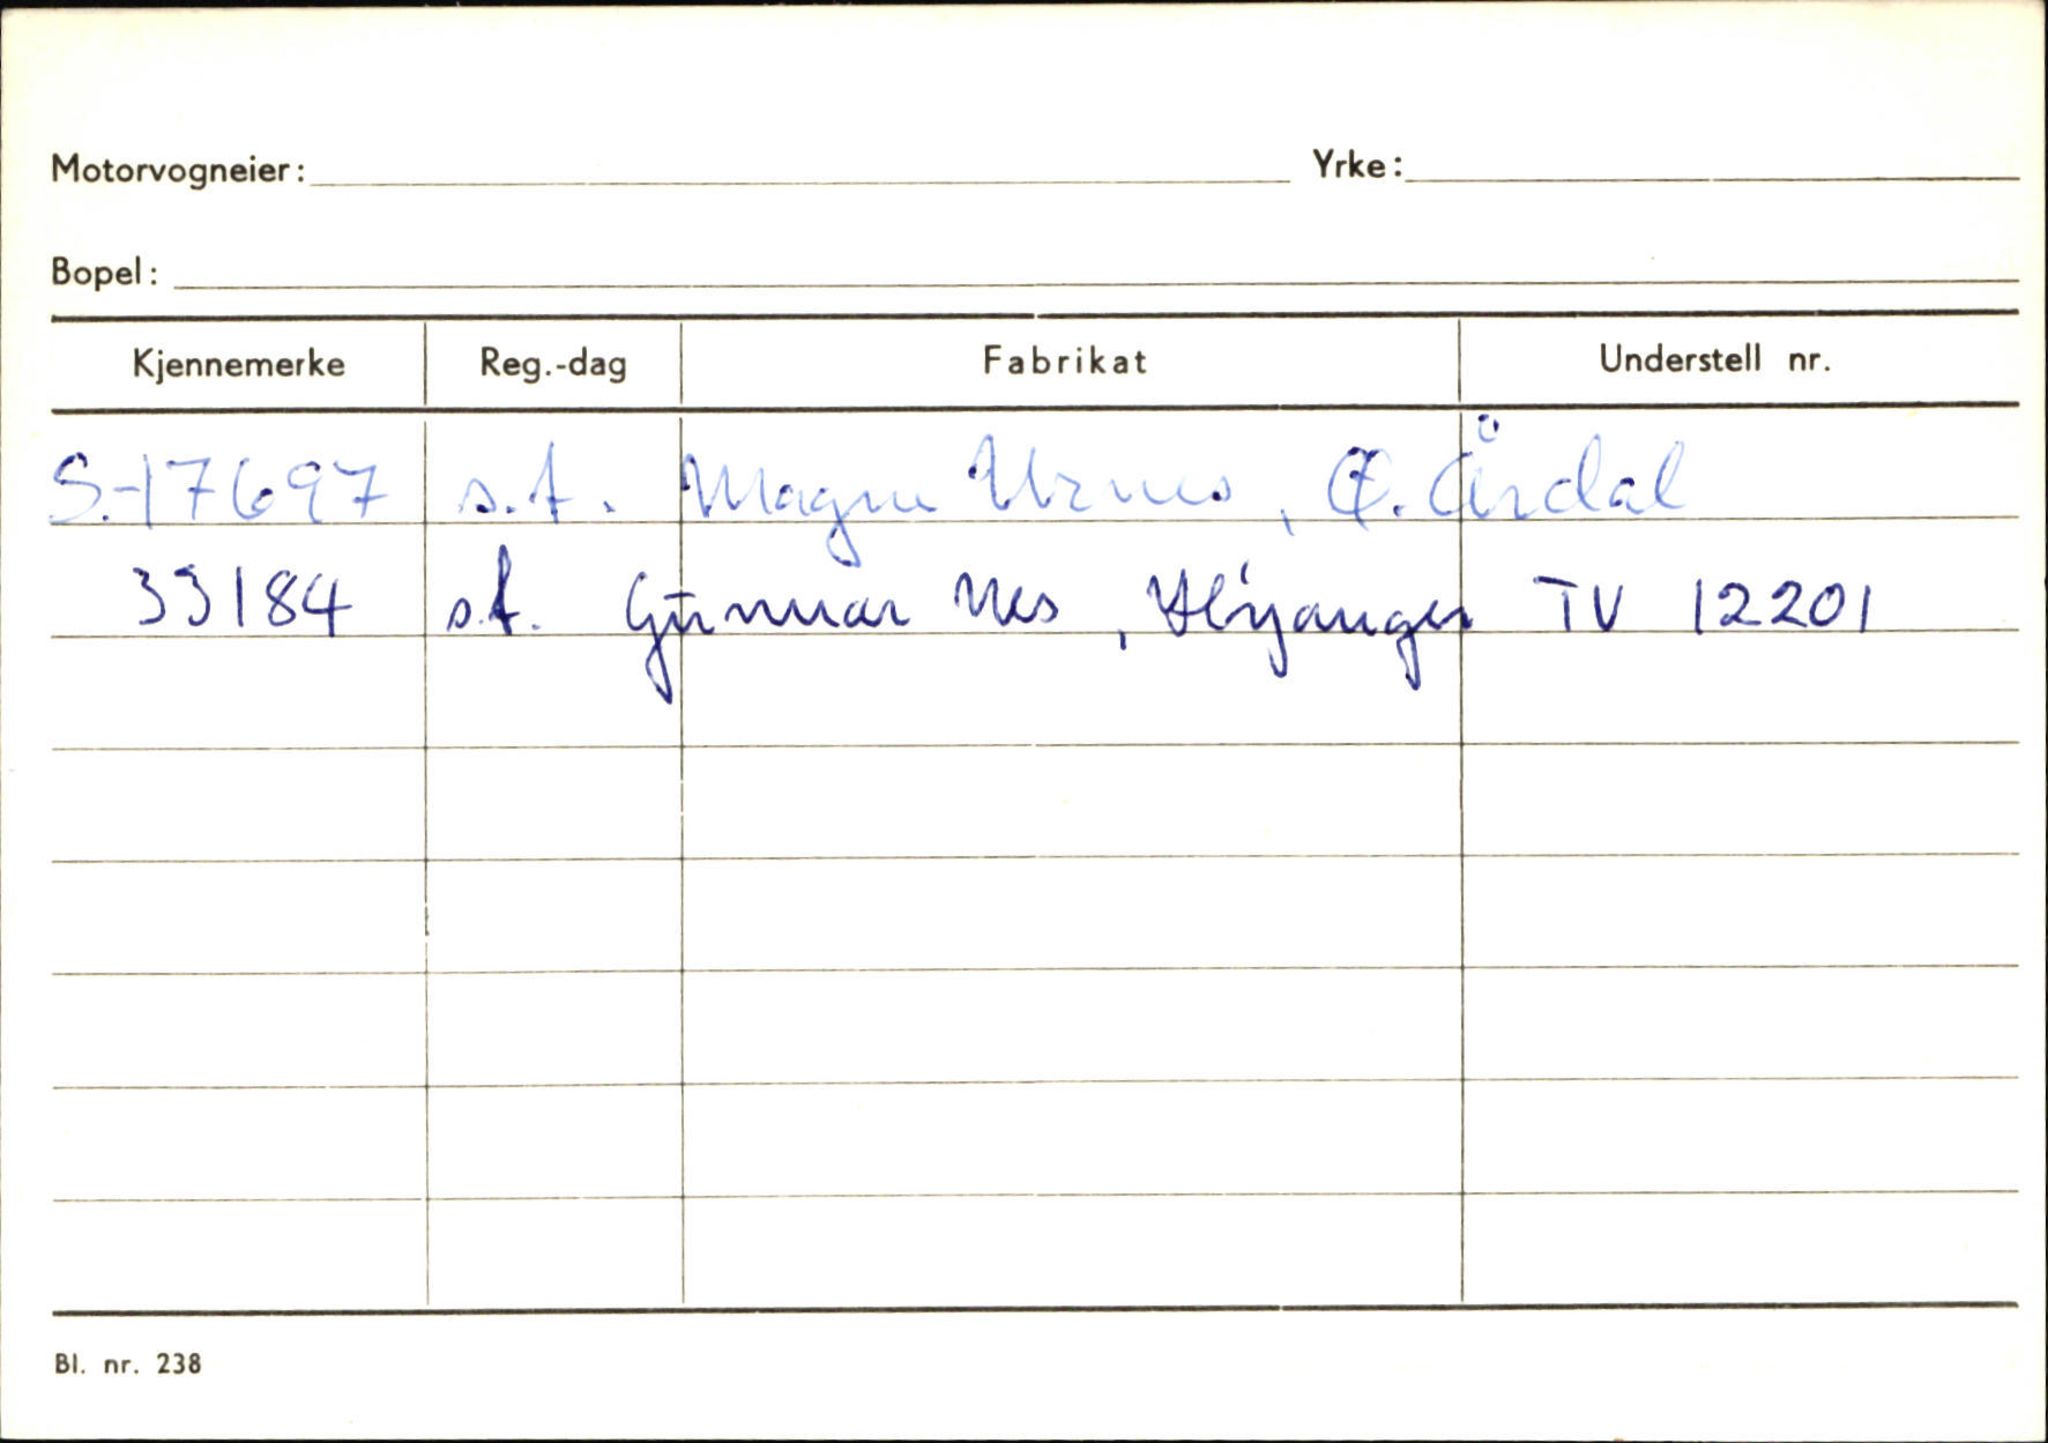 Motorvogneier: Yrke:
Bopel:
Kjennemerke Reg.-dag Fabrikat Understell nr.
S-17697 s.t. Magne Urnes, Ø. Årdal
33184 s.t. Gunnar Nes, Høyanger TV 12201
Bl. nr. 238